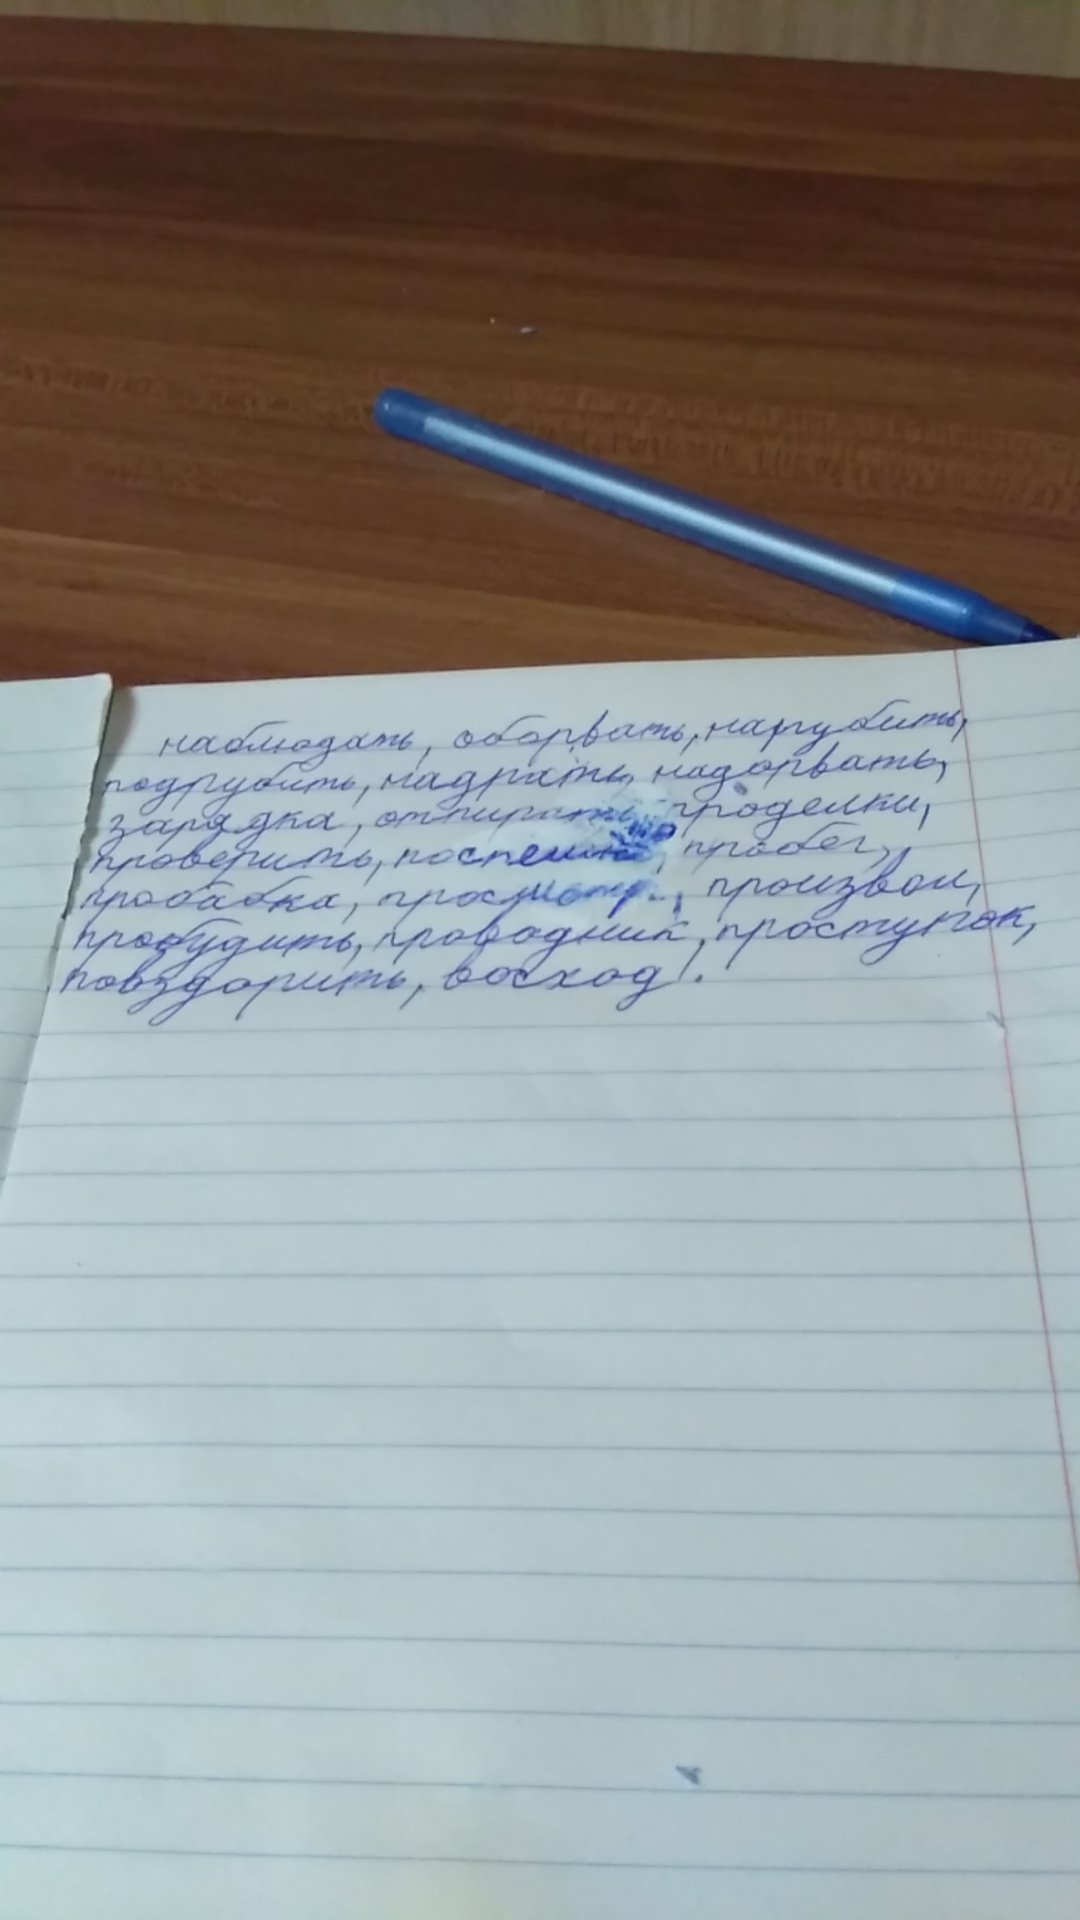 наблюдать, оборвать, нарубить,
подрубить, надрать, надорвать,
зарядка, отпирать, проделки,
проверить, пробег,
прабабка, просмотр, произвол,
пробудить, проводник, проступок,
повздорить, восход.